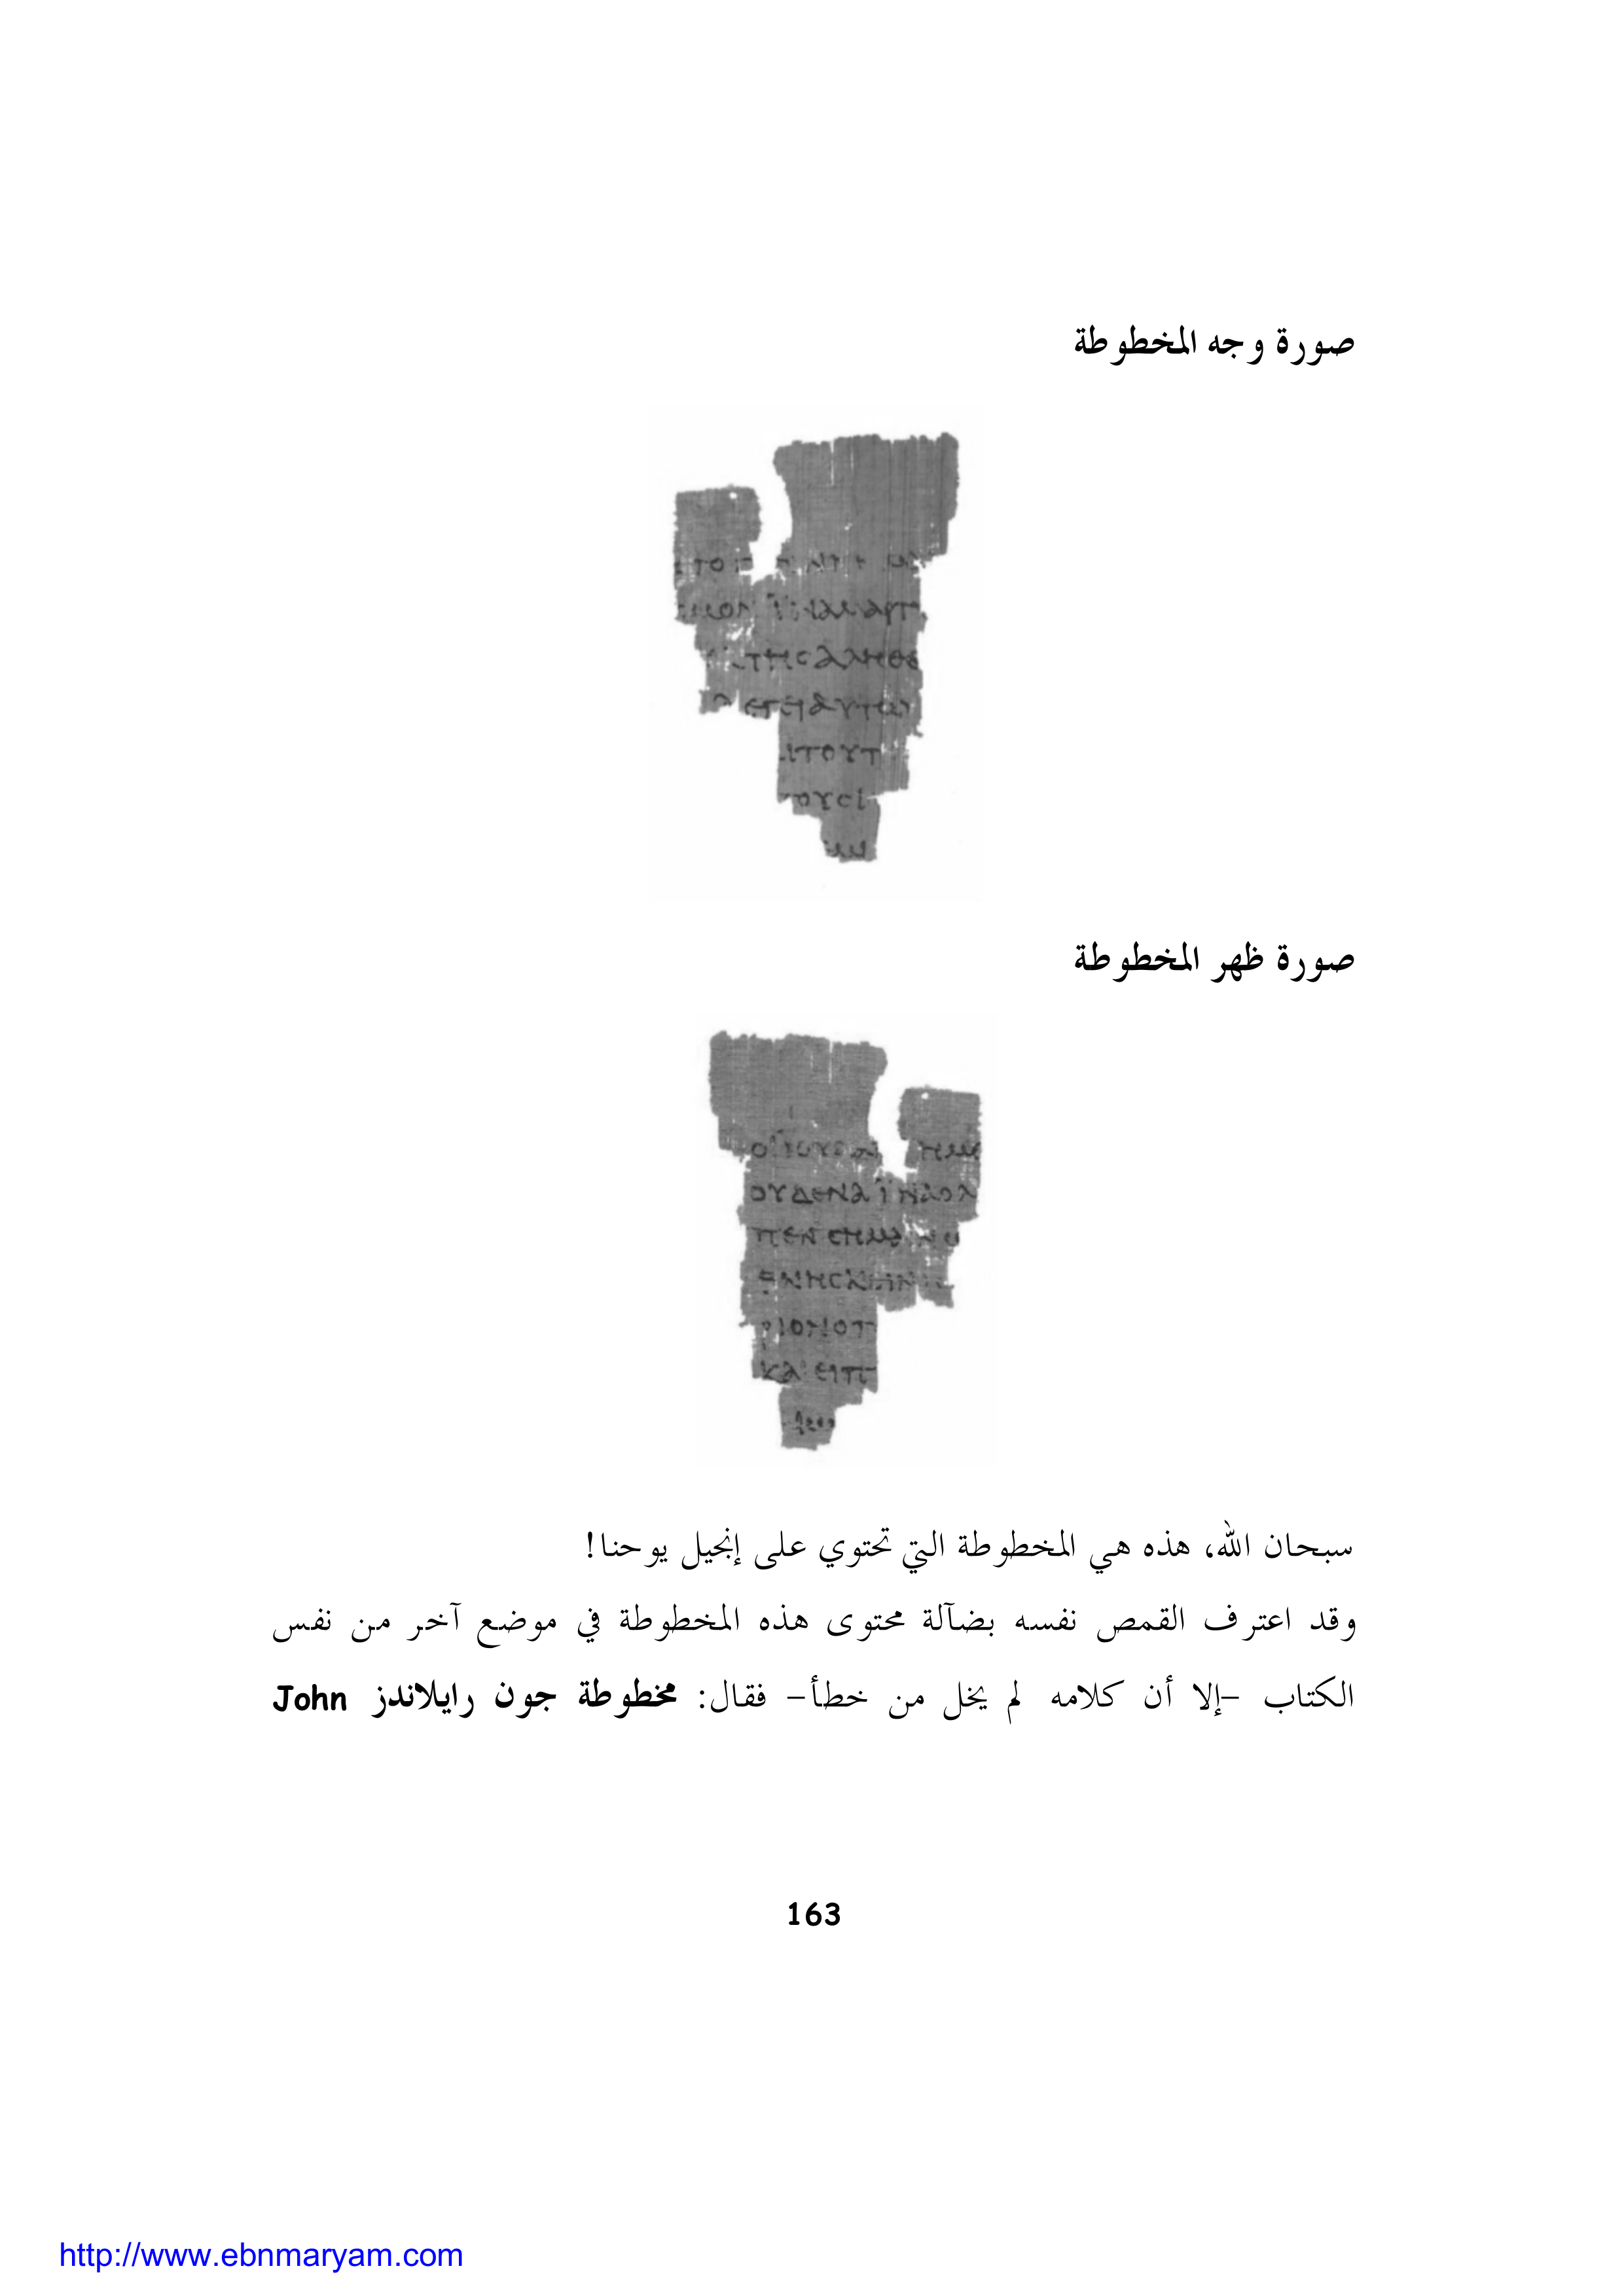 صورة وجه المخطوطة
ΤΗCΑΛΗΘΕ
ΙΤΟΥΤ
ΟΥCΙ
صورة ظهر المخطوطة
ΟΥΔΕΝΑΪΝΑΟΛ
ΠΕΝCΗΜΑΙΝΩ
ΚΑΙΕΙΠ
سبحان الله، هذه هي المخطوطة التي تحتوي على إنجيل يوحنا!
وقد اعترف القمص نفسه بضآلة محتوى هذه المخطوطة في موضع آخر من نفس
الكتاب –إلا أن كلامه لم يخل من خطأ– فقال: مخطوطة جون رايلاندز John
163
http://www.ebnmaryam.com